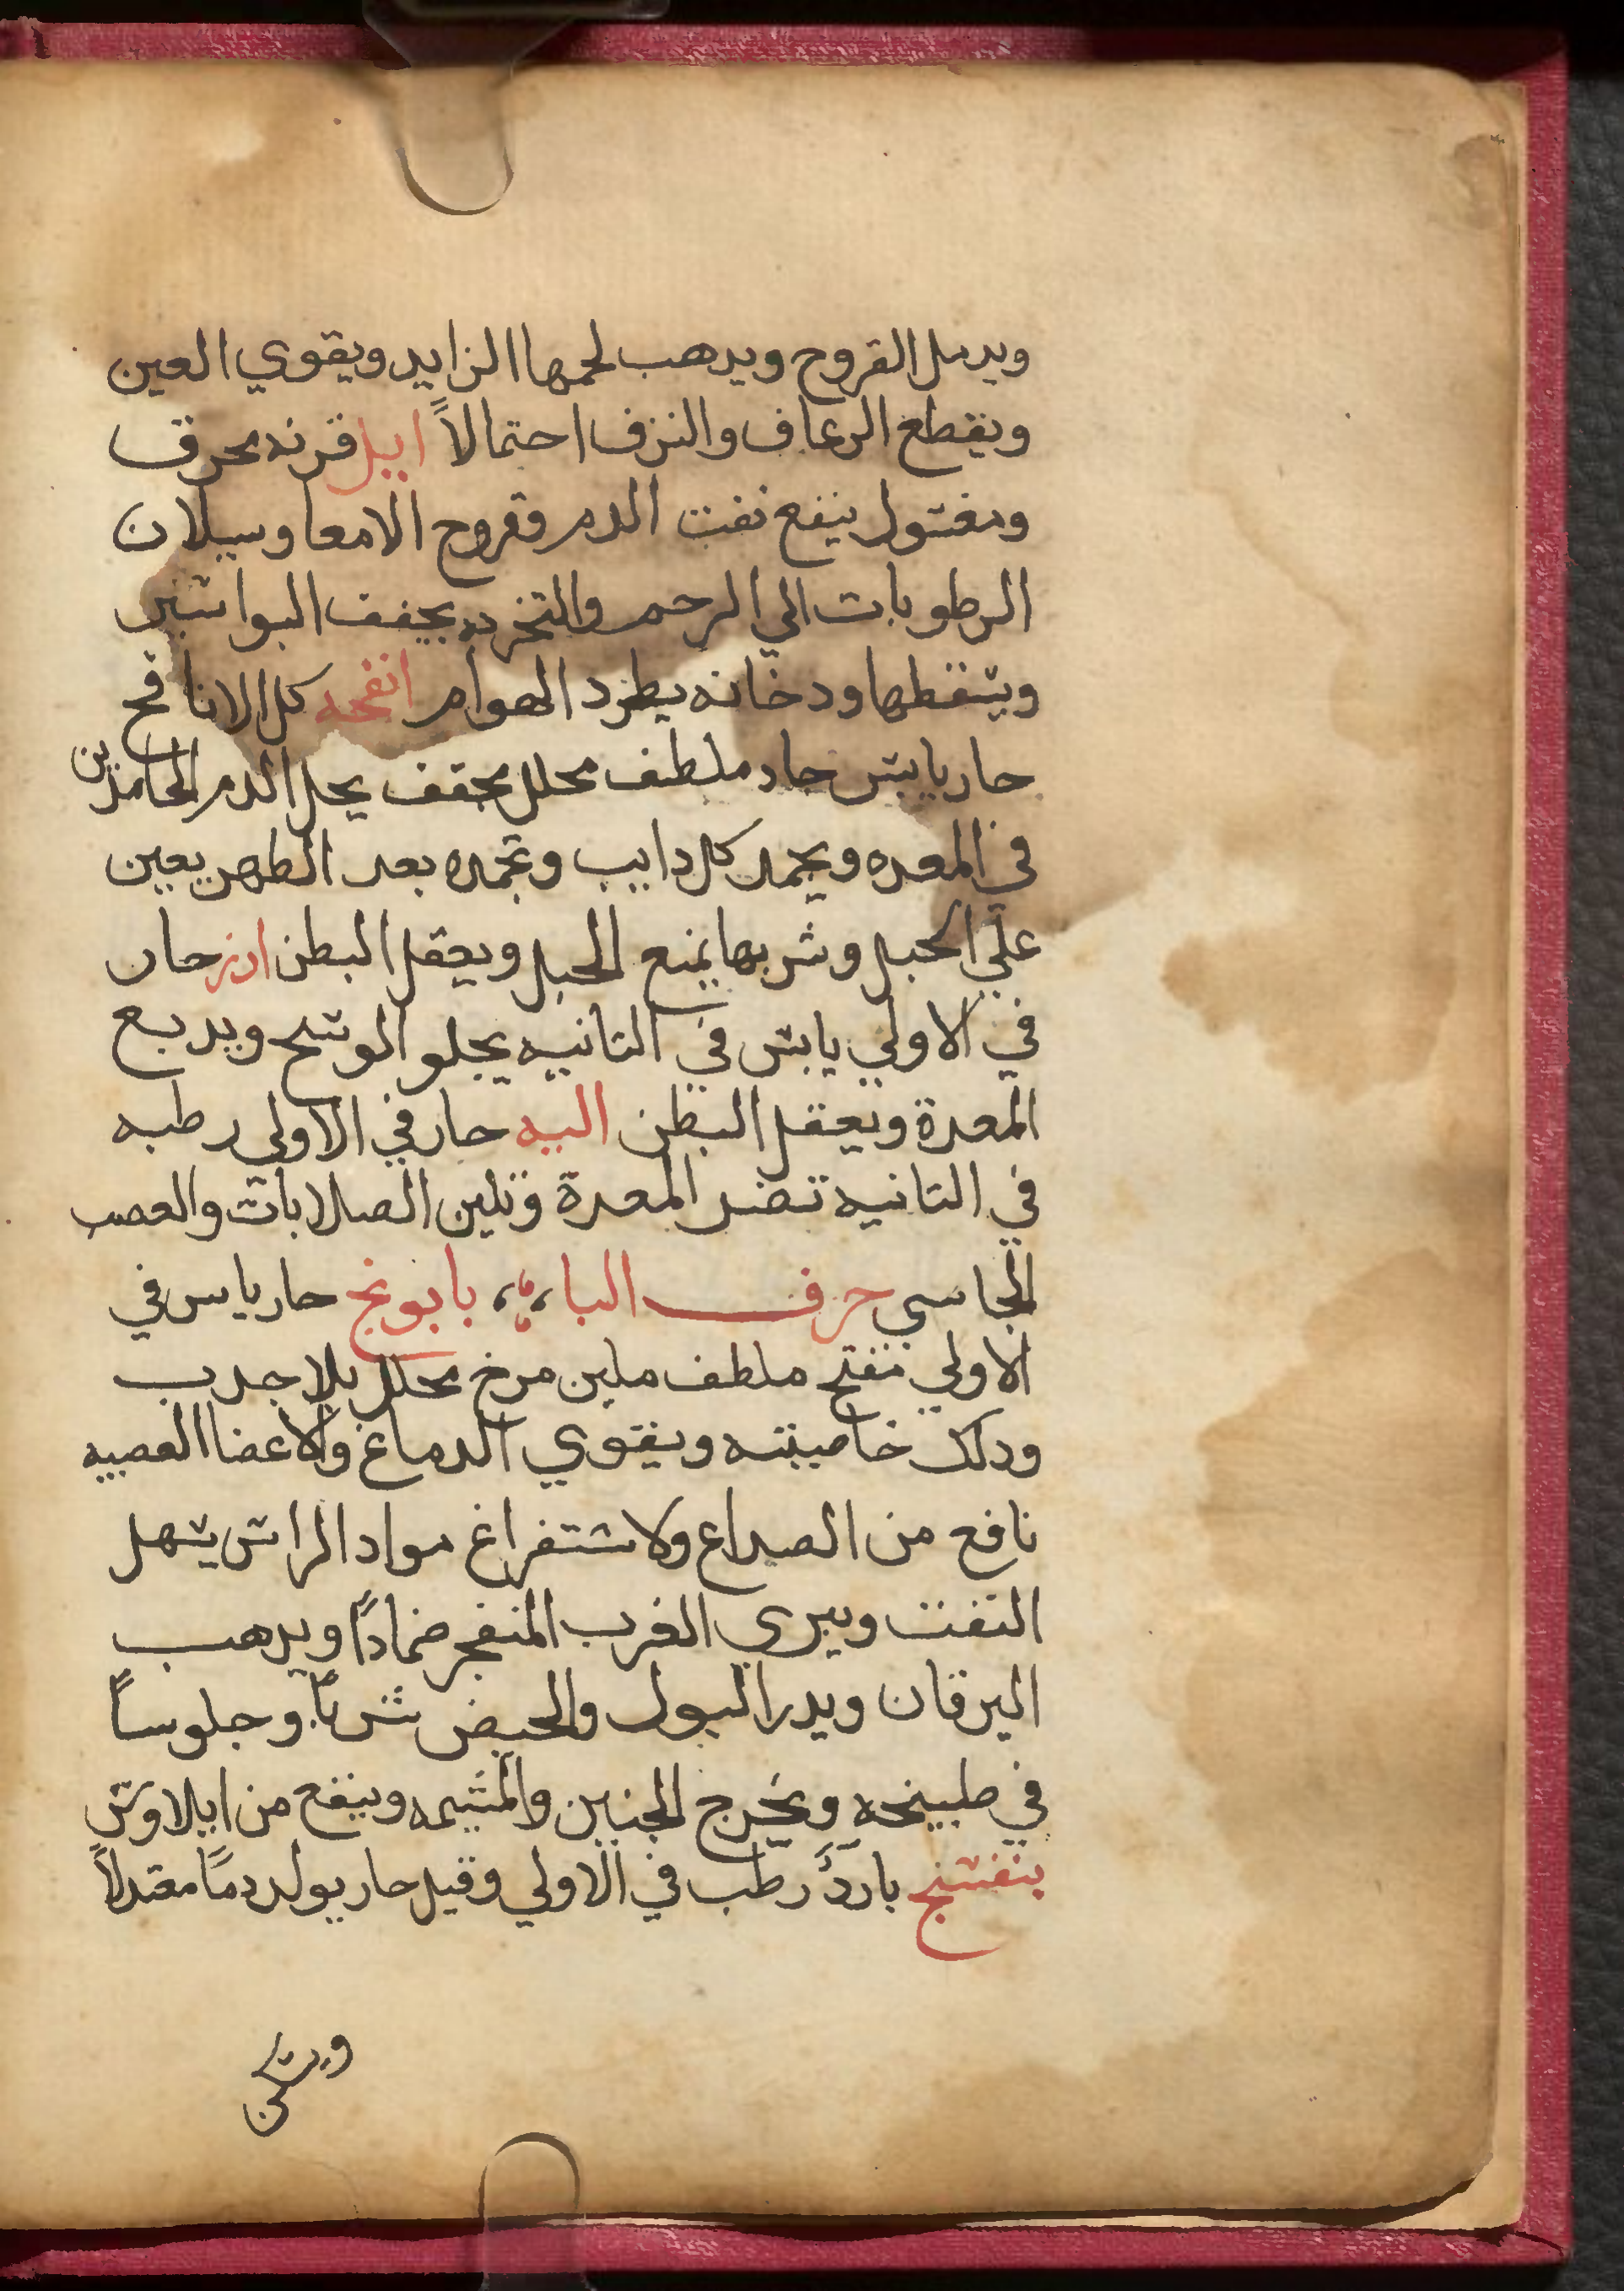 ويدمل القروح ويدهب لحمها الزايد ويقوي العين
ويقطع الرعاف والنزف احتمالاً ايل قرنه محرق
ومغتول ينفع نفت الدم وقروح الامعا وسيلان
الرطوبات الي الرحم والتخربه يجفف البواسير
ويسقطها ودخانه يطرد الهوام انفحه كل الانافح
حار يابس حاد ملطف محلل مجفف يحل الدم الجامد واللبن
في المعده ويجمد كل دايب وتحمله بعد الطهر يعين
علي الحبل وشربها يمنع الحبل ويعقل البطن ارز حار
في الاولي يابس في التانيه يجلو الوسخ ويدبغ
المعدة ويعقل البطن اليه حار في الاولي رطبه
في التانيه تضر المعدة وتلين الصلابات والعصب
الجاسي حرف البا، بابونج حار يابس في
الاولي مفتح ملطف ملين مرخ محلل بلا جدب
ودلك خاصيته ويقوي الدماغ والاعضا العصبيه
نافع من الصداع ولاستفراغ مواد الراس يسهل
النفت ويبري الغرب المنفجر ضماداً ويدهب
اليرقان ويدر البول والحيض شرباً وجلوساً
في طبيخه ويخرج الجنين والمشيمه وينفع من ايلاوس
بنفسج باردٌ رطب في الاولي وقيل حار يولد دماً معتدلاً
ويسكن